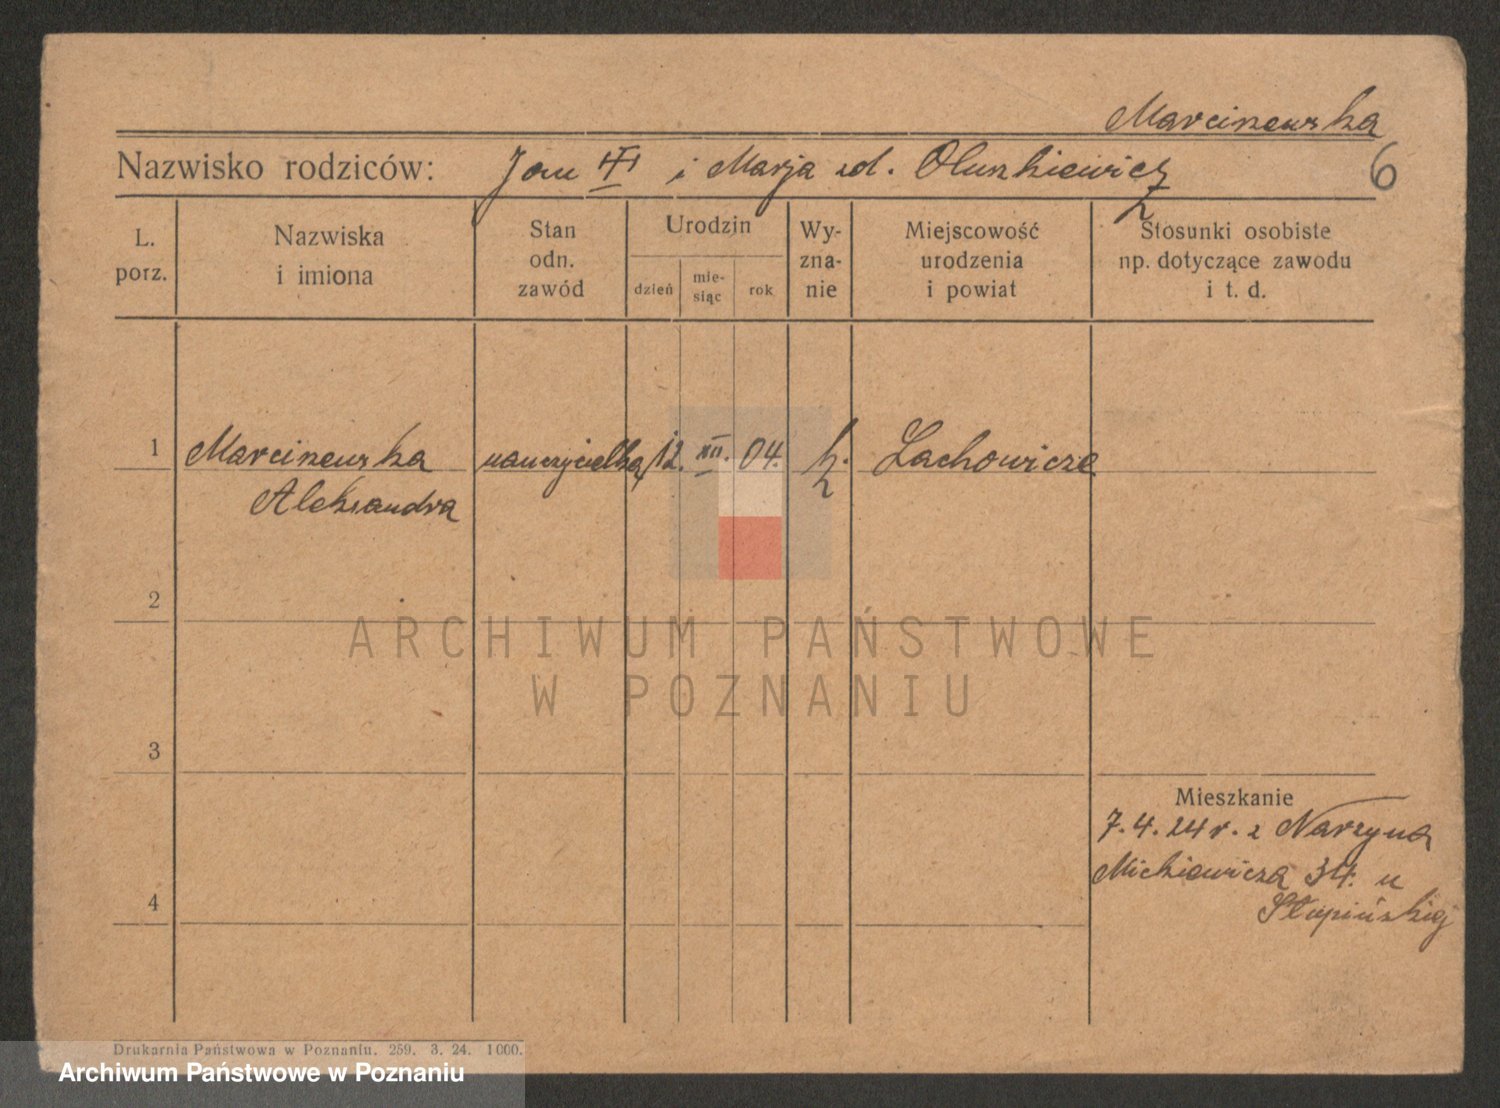 Marciszewska
Nazwisko rodziców: Jan i Marja zd. Oluszkiewicz
6
L. porz.
Nazwiska i imiona
Stan odn. zawód
Urodzin
dzień
miesiąc
rok
Wyznanie
Miejscowość urodzenia i powiat
Stosunki osobiste np. dotyczące zawodu i t. d.
1 Marciszewska nauczycielka 12. XII. 04. k. Lachowicze
Aleksandra
2
ARCHIWUM PAŃSTWOWE
W POZNANIU
3
Mieszkanie
7. 4. 24 r. z
Mickiewicza 34. u
4
Słupińskiej
Drukarnia Państwowa w Poznaniu. 259. 3. 24. 1000.
Archiwum Państwowe w Poznaniu